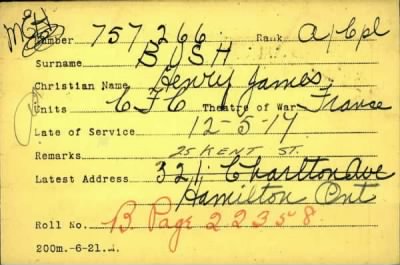 Number 757266 Rank A/Cpl
Surname BUSH
Christian Name Henry James
Units C F C Theatre of War France
Date of Service 12-5-17
Remarks 25 KENT ST.
Latest Address 321 Charlton Ave
Hamilton Ont
Roll No. B. Page 22358
200m.-6-21.